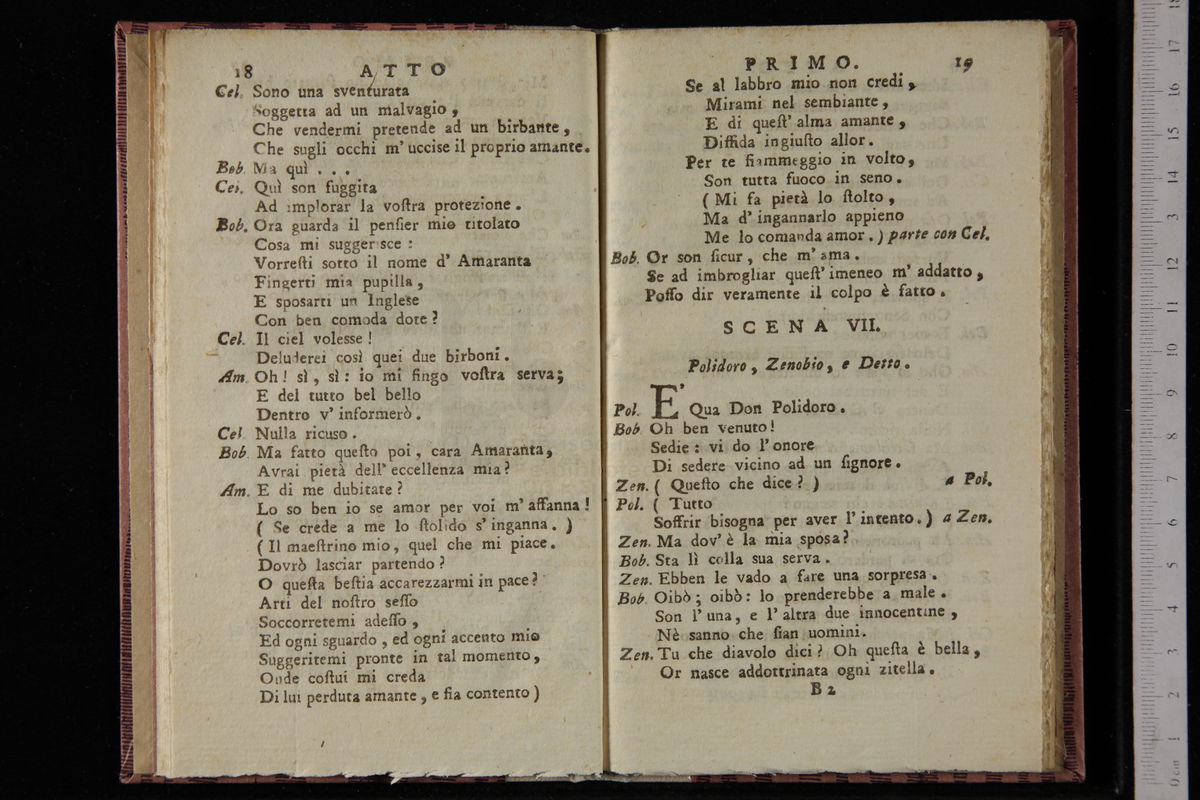 18 ATTO
Cel. Sono una sventurata
Soggetta ad un malvagio,
Che vendermi pretende ad un birbante,
Che sugli occhi m'uccise il proprio amante.
Bob. Ma quì . . .
Cel. Quì son fuggita
Ad implorar la voſtra protezione.
Bob. Ora guarda il penſier mio titolato
Cosa mi suggerisce:
Vorreſti sotto il nome d'Amaranta
Fingerti mia pupilla,
E sposarti un Inglese
Con ben comoda dote?
Cel. Il ciel volesse!
Deluderei così quei due birboni.
Am. Oh! sì, sì: io mi fingo voſtra serva;
E del tutto bel bello
Dentro v'informerò.
Cel Nulla ricuso.
Bob. Ma fatto queſto poi, cara Amaranta,
Avrai pietà dell'eccellenza mia?
Am. E di me dubitate?
Lo so ben io se amor per voi m'affanna!
( Se crede a me lo ſtolido s'inganna. )
( Il maeſtrino mio, quel che mi piace.
Dovrò lasciar partendo?
O queſta beſtia accarezzarmi in pace?
Arti del noſtro seſſo
Soccorretemi adeſſo,
Ed ogni sguardo, ed ogni accento mio
Suggeritemi pronte in tal momento,
Onde coſtui mi creda
Di lui perduta amante, e ſia contento )
PRIMO. 19
Se al labbro mio non credi,
Mirami nel sembiante,
E di queſt'alma amante,
Diffida ingiuſto allor.
Per te fiammeggio in volto,
Son tutta fuoco in seno.
( Mi fa pietà lo ſtolto,
Ma d'ingannarlo appieno
Me lo comanda amor. ) parte con Cel.
Bob. Or son ſicur, che m'ama.
Se ad imbrogliar queſt'imeneo m'addatto,
Poſſo dir veramente il colpo è fatto.
SCENA VII.
Polidoro, Zenobio, e Detto.
Pol. E' Qua Don Polidoro.
Bob Oh ben venuto!
Sedie: vi do l'onore
Di sedere vicino ad un ſignore.
Zen. ( Queſto che dice? ) a Pol.
Pol. ( Tutto
Soffrir bisogna per aver l'intento. ) a Zen.
Zen. Ma dov'è la mia sposa?
Bob. Sta lì colla sua serva.
Zen. Ebben le vado a fare una sorpresa.
Bob. Oibò; oibò: lo prenderebbe a male.
Son l'una, e l'altra due innocentine,
Nè sanno che ſian uomini.
Zen. Tu che diavolo dici? Oh queſta è bella,
Or nasce addottrinata ogni zitella.
B 2